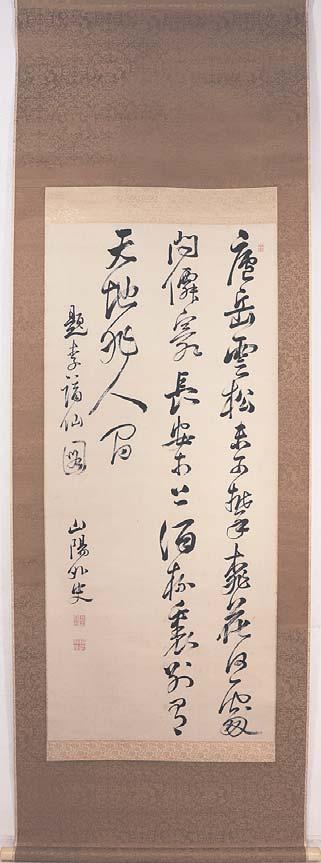 廬岳雲松未可攀桃花何處
問僊寰長安市上酒杯裏別有
天地非人間
題李謫仙圖 山陽外史